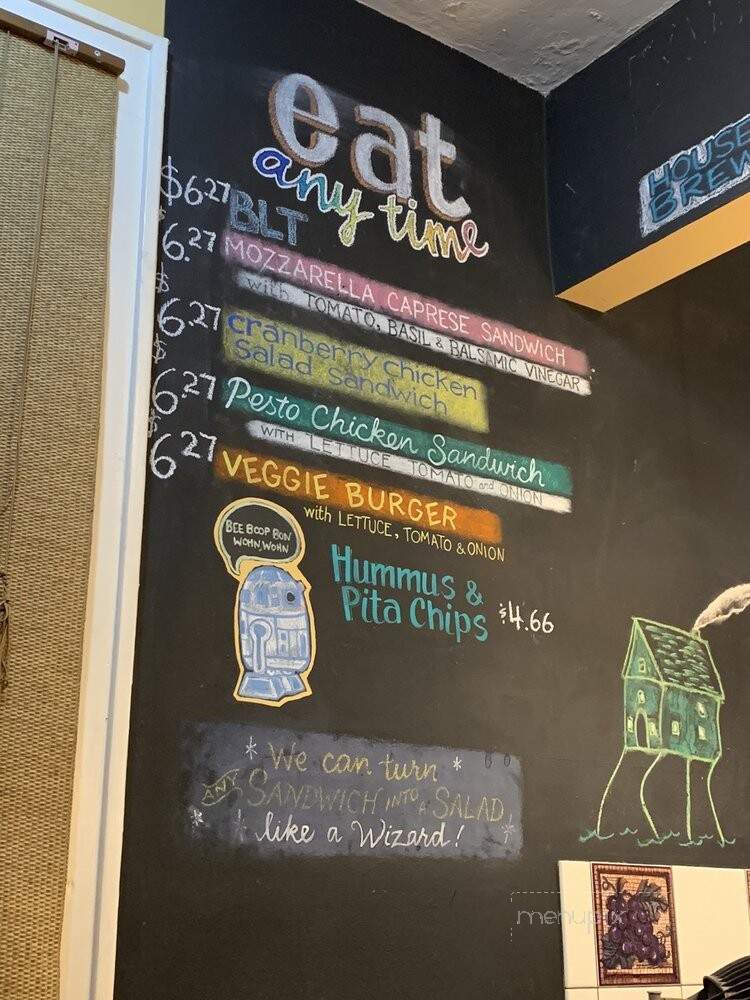 eat
any time
$6.27 BLT
$6.27 MOZZARELLA CAPRESE SANDWICH
with TOMATO, BASIL & BALSAMIC VINEGAR
$6.27 cranberry chicken
salad sandwich
$6.27 Pesto Chicken Sandwich
WITH LETTUCE TOMATO and ONION
$6.27 VEGGIE BURGER
with LETTUCE, TOMATO & ONION
BEE BOOP BON
WOHN, WOHN
Hummus &
Pita Chips $4.66
We can turn
ANY SANDWICH INTO A SALAD
like a Wizard!
HOUSE
BREW
menupix